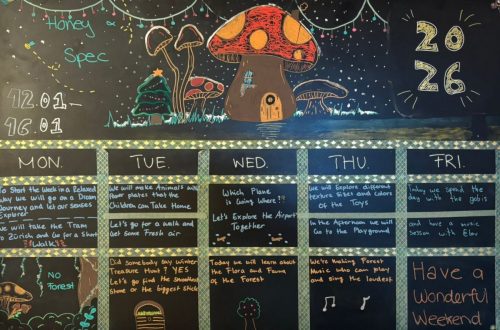 Honey
&
Spec
12.01-
16.01
20
26
MON. TUE. WED. THU. FRI.
To Start the Week in a Relaxed
way we will go on a Dream
Journey and let our senses
Explore!
We will make Animals with
paper plates that the
Children can Take Home
Which Plane
is Going Where??
We will Explore different
texture Sizes and Colors
of the Toys
Today we spend the
day with the gabis
We will take the Tram
to Zürich and Go for a Short
Walk
Let's go for a walk and
Get some Fresh air
Let's Explore the Airport
Together
In the Afternoon we will
Go to the Playground
and have a music
Session with Elav
No
Forest
Did Somebody say Winter
Treasure Hunt? YES
Let's go find the smallest
stone or the biggest stick
Today we will learn about
the Flora and Fauna
of the Forest
We're Making Forest
Music who can play
and sing the loudest
Have a
Wonderful
Weekend